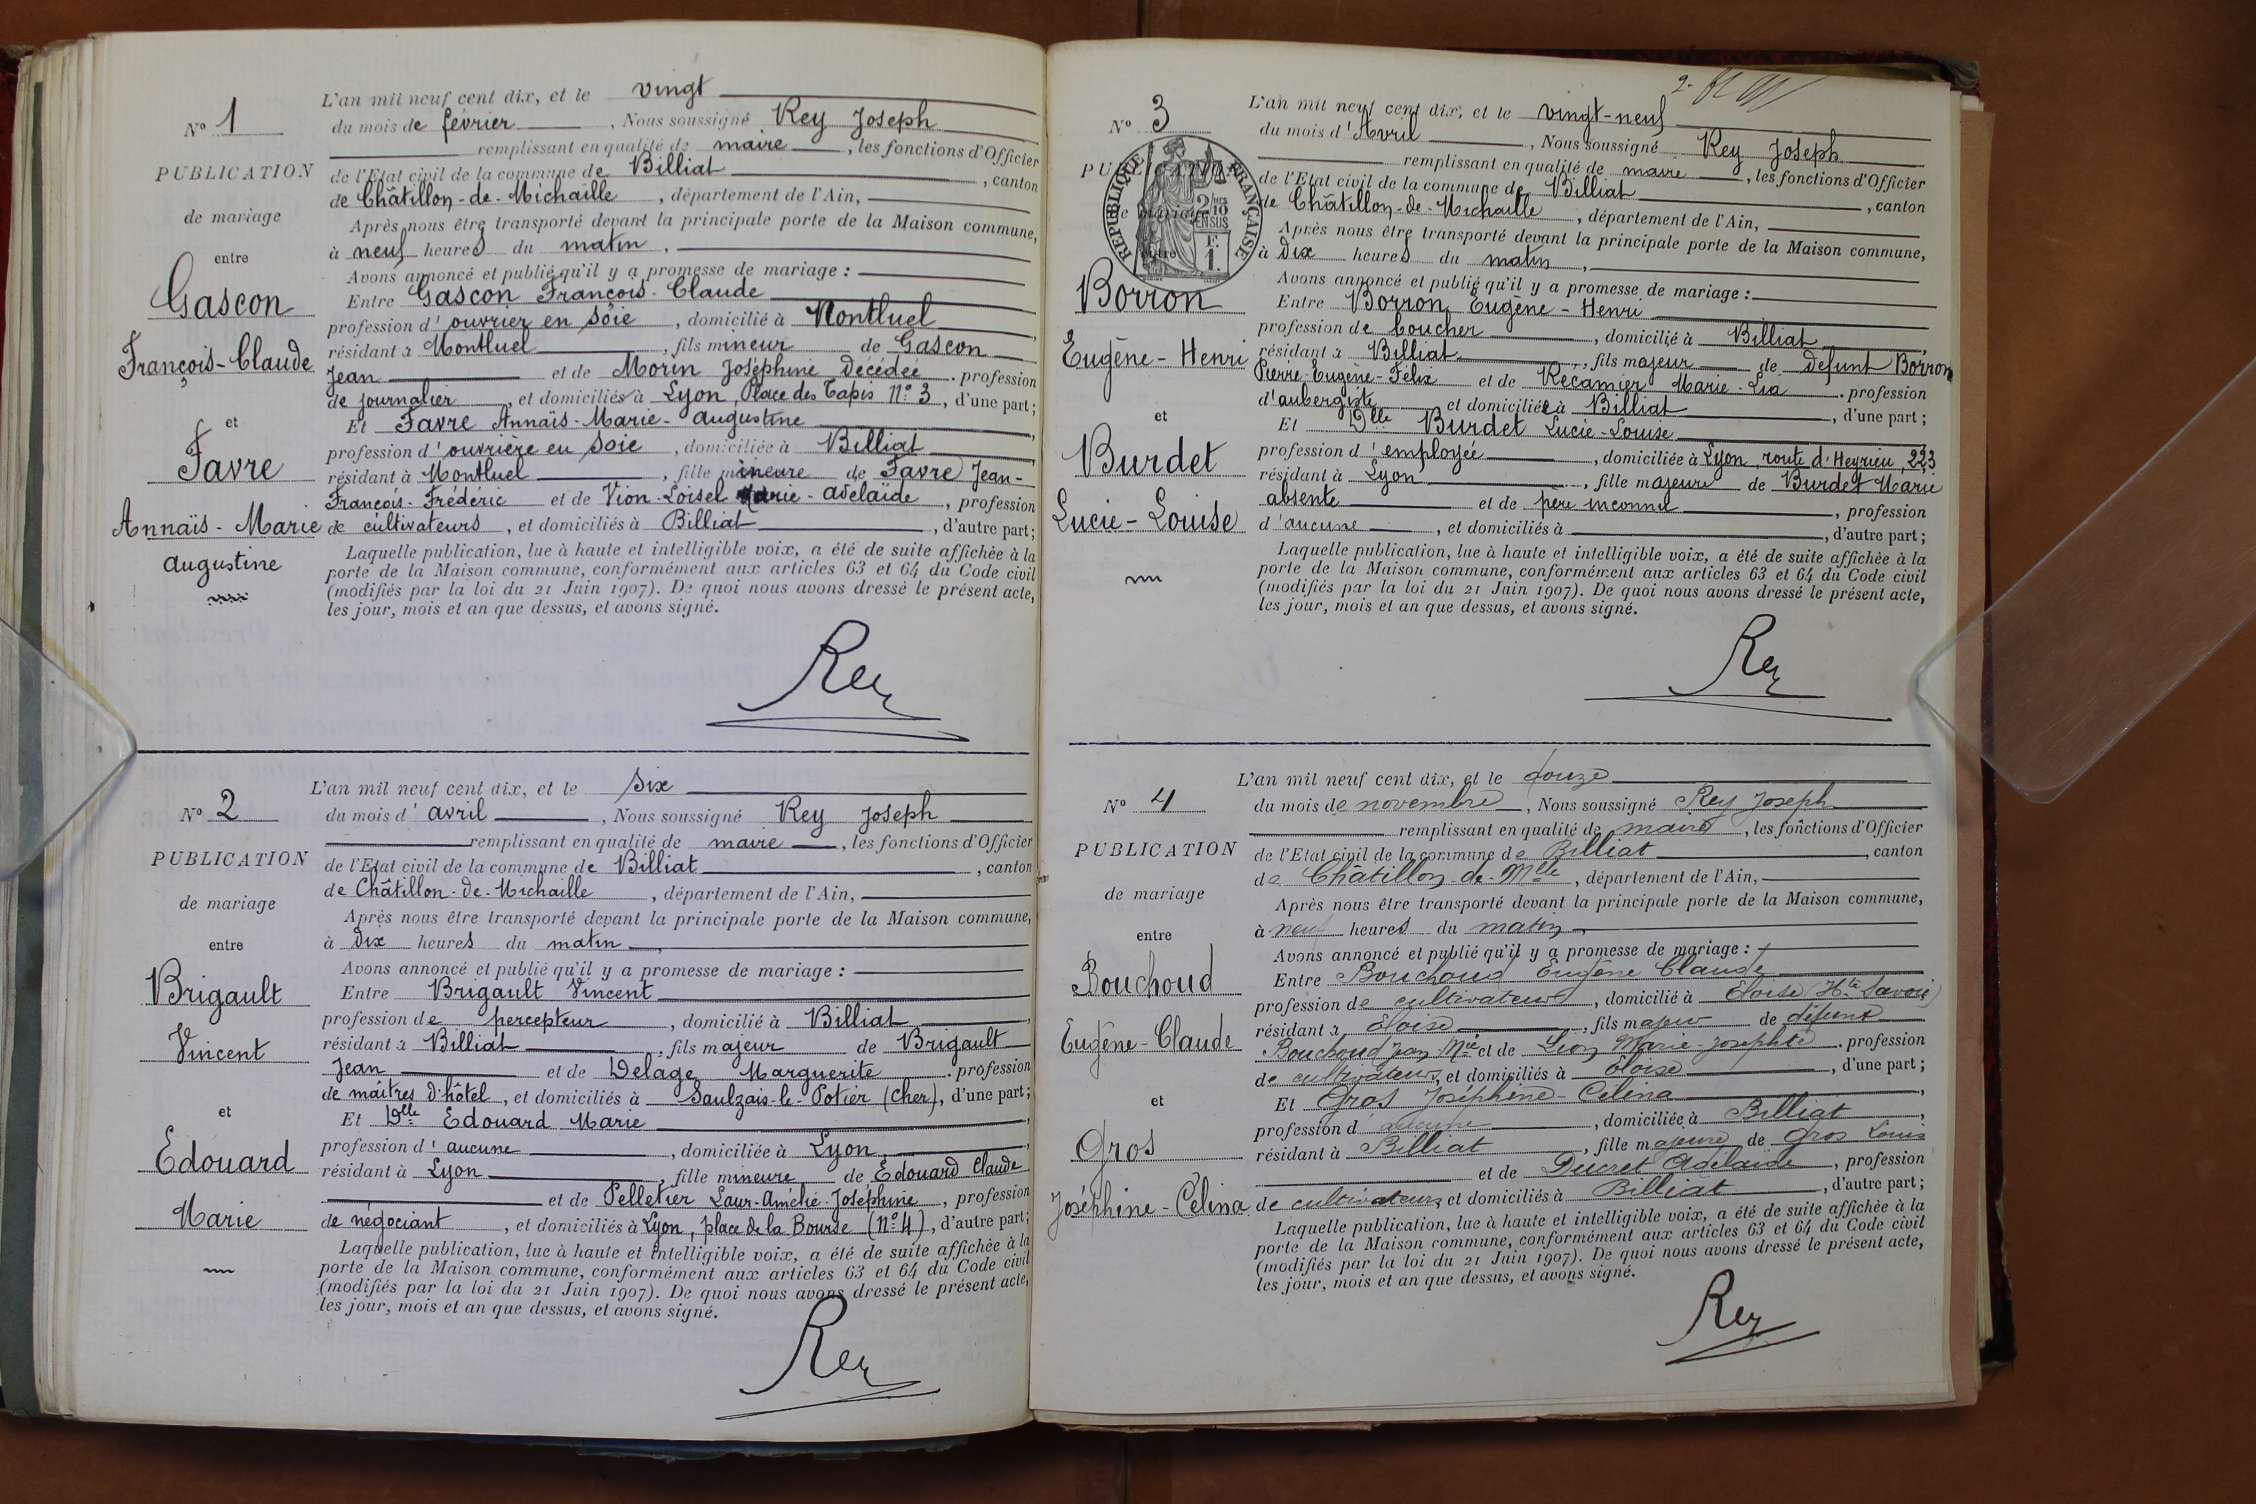 N° 1
PUBLICATION
de mariage
entre
Gascon
François-Claude
et
Favre
Annaïs - Marie
augustine
L'an mil neuf cent dix, et le vingt
du mois de février, Nous soussigné Rey Joseph
remplissant en qualité de maire, les fonctions d'Officier
de l'Etat civil de la commune de Billiat, canton
de Châtillon-de-Michaille, département de l'Ain,
Après nous être transporté devant la principale porte de la Maison commune,
à neuf heures du matin,
Avons annoncé et publié qu'il y a promesse de mariage :
Entre Gascon François-Claude
profession d'ouvrier en soie, domicilié à Montluel
résidant à Montluel, fils mineur de Gascon
Jean et de Morin Joséphine Décédée. profession
de journalier, et domiciliés à Lyon, Place des Tapis N° 3, d'une part;
Et Favre Annaïs-Marie-augustine
profession d'ouvrière en soie, domiciliée à Billiat
résidant à Montluel, fille mineure de Favre Jean-
François-Frédéric et de Vion-Loisel Marie-adelaïde, profession
de cultivateurs, et domiciliés à Billiat, d'autre part;
Laquelle publication, lue à haute et intelligible voix, a été de suite affichée à la
porte de la Maison commune, conformément aux articles 63 et 64 du Code civil
(modifiés par la loi du 21 Juin 1907). De quoi nous avons dressé le présent acte,
les jour, mois et an que dessus, et avons signé.
Rey
N° 2
PUBLICATION
de mariage
entre
Brigault
Vincent
et
Edouard
Marie
L'an mil neuf cent dix, et le six
du mois d'avril, Nous soussigné Rey Joseph
remplissant en qualité de maire, les fonctions d'Officier
de l'Etat civil de la commune de Billiat, canton
de Châtillon-de-Michaille, département de l'Ain,
Après nous être transporté devant la principale porte de la Maison commune,
à Dix heures du matin,
Avons annoncé et publié qu'il y a promesse de mariage :
Entre Brigault Vincent
profession de percepteur, domicilié à Billiat
résidant à Billiat, fils majeur de Brigault
Jean et de Delage Marguerite. profession
de maîtres d'hôtel, et domiciliés à Saulzais-le-Potier (Cher), d'une part;
Et Dlle Edouard Marie
profession d'aucune, domiciliée à Lyon,
résidant à Lyon, fille mineure de Edouard Claude
et de Pelletier Laur-Amélie-Joséphine, profession
de négociant, et domiciliés à Lyon, place de la Bourse (N° 4), d'autre part;
Laquelle publication, lue à haute et intelligible voix, a été de suite affichée à la
porte de la Maison commune, conformément aux articles 63 et 64 du Code civil
(modifiés par la loi du 21 Juin 1907). De quoi nous avons dressé le présent acte,
les jour, mois et an que dessus, et avons signé.
Rey
2.
N° 3
PUBLICATION
de mariage
entre
RÉPUBLIQUE FRANÇAISE
2/10 EN SUS
F. 1.
Borron
Eugène - Henri
et
Burdet
Lucie - Louise
L'an mil neuf cent dix, et le vingt-neuf
du mois d'Avril, Nous soussigné Rey Joseph
remplissant en qualité de maire, les fonctions d'Officier
de l'Etat civil de la commune de Billiat, canton
de Châtillon-de-Michaille, département de l'Ain,
Après nous être transporté devant la principale porte de la Maison commune,
à Dix heures du matin,
Avons annoncé et publié qu'il y a promesse de mariage :
Entre Borron Eugène-Henri
profession de boucher, domicilié à Billiat
résidant à Billiat, fils majeur de défunt Borron
Pierre-Eugène-Félix et de Récamier Marie-Lia. profession
d'aubergiste et domiciliée à Billiat, d'une part;
Et Dlle Burdet Lucie-Louise
profession d'employée, domiciliée à Lyon, route d'Heyrieu, 223
résidant à Lyon, fille majeure de Burdet Marie
absente et de père inconnu, profession
d'aucune, et domiciliés à, d'autre part;
Laquelle publication, lue à haute et intelligible voix, a été de suite affichée à la
porte de la Maison commune, conformément aux articles 63 et 64 du Code civil
(modifiés par la loi du 21 Juin 1907). De quoi nous avons dressé le présent acte,
les jour, mois et an que dessus, et avons signé.
Rey
N° 4
PUBLICATION
de mariage
entre
Bouchoud
Eugène-Claude
et
Gros
Joséphine-Célina
L'an mil neuf cent dix, et le douze
du mois de novembre, Nous soussigné Rey Joseph
remplissant en qualité de maire, les fonctions d'Officier
de l'Etat civil de la commune de Billiat, canton
de Châtillon-de-Mlle, département de l'Ain,
Après nous être transporté devant la principale porte de la Maison commune,
à neuf heures du matin,
Avons annoncé et publié qu'il y a promesse de mariage :
Entre Bouchoud Eugène Claude
profession de cultivateur, domicilié à Eloise (Hte Savoie)
résidant à Eloise, fils majeur de défunt
Bouchoud Jean Mie et de Leon Marie-Josephte. profession
de cultivateurs, et domiciliés à Eloise, d'une part;
Et Gros Joséphine-Celina
profession d aucune, domiciliée à Billiat,
résidant à Billiat, fille majeure de Gros Louis
et de Ducret Adelaïde, profession
de cultivateurs, et domiciliés à Billiat, d'autre part;
Laquelle publication, lue à haute et intelligible voix, a été de suite affichée à la
porte de la Maison commune, conformément aux articles 63 et 64 du Code civil
(modifiés par la loi du 21 Juin 1907). De quoi nous avons dressé le présent acte,
les jour, mois et an que dessus, et avons signé.
Rey